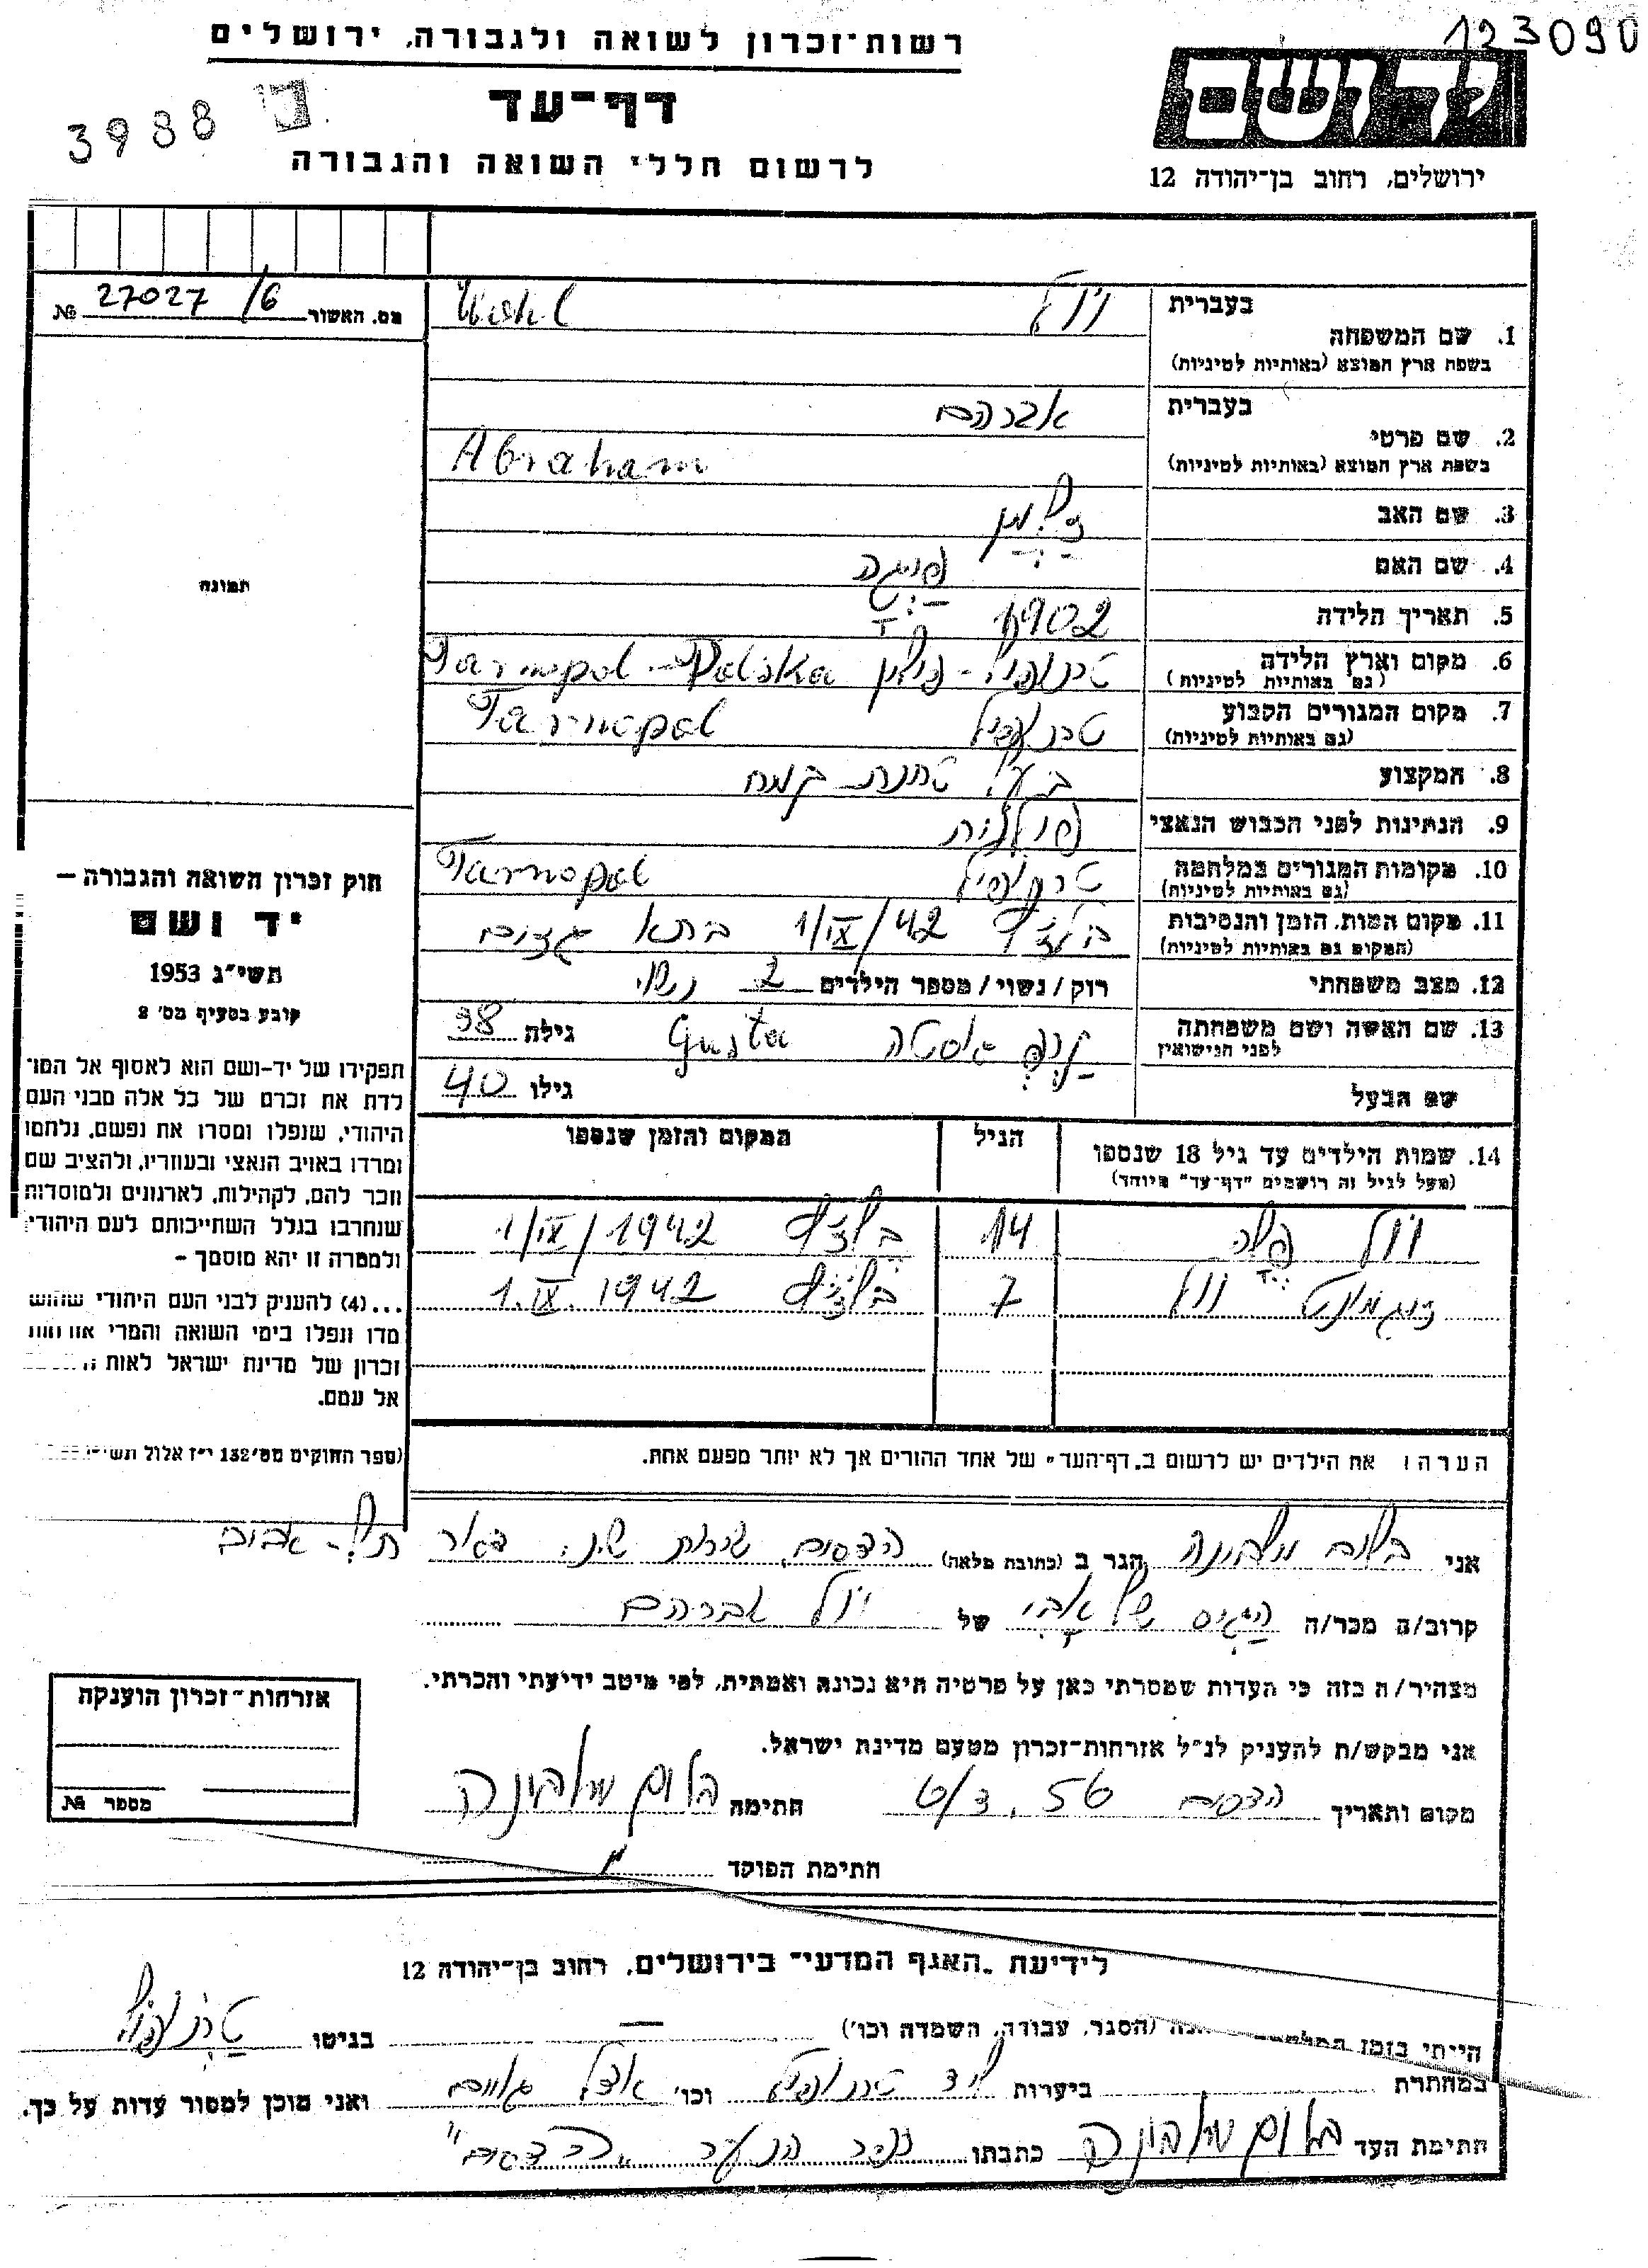 123090
רשות־זכרון לשואה ולגבורה, ירושלים
דף־עד
3988
לרשום חללי השואה והגבורה
ירושלים, רחוב בן־יהודה 12
מס. האשור 27027/6 №
בעברית וול Wohl
1. שם המשפחה
בשפת ארץ המוצא (באותיות לטיניות)
בעברית אברהם
2. שם פרטי
בשפת ארץ המוצא (באותיות לטיניות) Abraham
3. שם האב זלמן
4. שם האם פייגה
5. תאריך הלידה 1902
6. מקום וארץ הלידה טרנופול - פולין Tarnopol - Polska
(גם באותיות לטיניות)
7. מקום המגורים הקבוע טרנופול Tarnopol
(גם באותיות לטיניות)
8. המקצוע בעל טחנת קמח
9. הנתינות לפני הכבוש הנאצי פולנית
10. מקומות המגורים במלחמה טרנופול Tarnopol
(גם באותיות לטיניות)
11. מקום המות, הזמן והנסיבות בלזץ 1/IX/42 בתא גזים
(המקום גם באותיות לטיניות)
12. מצב משפחתי רוק/נשוי/מספר הילדים 2 נשוי
13. שם האשה ושם משפחתה גוסטה Gusta גילה 38
לפני הנישואין
שם הבעל גילו 40
14. שמות הילדים עד גיל 18 שנספו הגיל המקום והזמן שנספו
(מעל לגיל זה רושמים "דף־עד" מיוחד)
וול פלה 14 בלזץ 1/IX/1942
זיגמונט וול 7 בלזץ 1.IX.1942
הערה: את הילדים יש לרשום ב„דף־העד" של אחד ההורים אך לא יותר מפעם אחת.
תמונה
חוק זכרון השואה והגבורה —
יד ושם
תשי"ג 1953
קובע בסעיף מס' 2
תפקידו של יד־ושם הוא לאסוף אל המו־
לדת את זכרם של כל אלה מבני העם
היהודי, שנפלו ומסרו את נפשם, נלחמו
ומרדו באויב הנאצי ובעוזריו, ולהציב שם
וזכר להם, לקהילות, לארגונים ולמוסדות
שנחרבו בגלל השתייכותם לעם היהודי
ולמטרה זו יהא מוסמך –
...(4) להעניק לבני העם היהודי שהוש
מדו ונפלו בימי השואה והמרי אזרחות
זכרון של מדינת ישראל לאות
אל עמם.
(ספר החוקים מס' 132 י"ז אלול תשי"
אני בלום מלבינה הגר ב (כתובת מלאה) הדסים, דואר תל־אביב
קרוב/ה מכר/ה הגיס של אבי של וול אברהם
מצהיר/ה בזה כי העדות שמסרתי כאן על פרטיה היא נכונה ואמתית, לפי מיטב ידיעתי והכרתי.
אני מבקש/ת להעניק לנ"ל אזרחות־זכרון מטעם מדינת ישראל.
מקום ותאריך הדסים חתימה בלום מלבינה
חתימת הפוקד
אזרחות־זכרון הוענקה
מספר №
לידיעת „האגף המדעי" בירושלים, רחוב בן־יהודה 12
הייתי בזמן (הסגר, עבודה, השמדה וכו') — בגיטו טרנופול
במחתרת ביערות ליד טרנופול וכו' אצל גויים ואני מוכן למסור עדות על כך.
חתימת העד בלום מלבינה כתבתו כפר הנוער „הדסים"